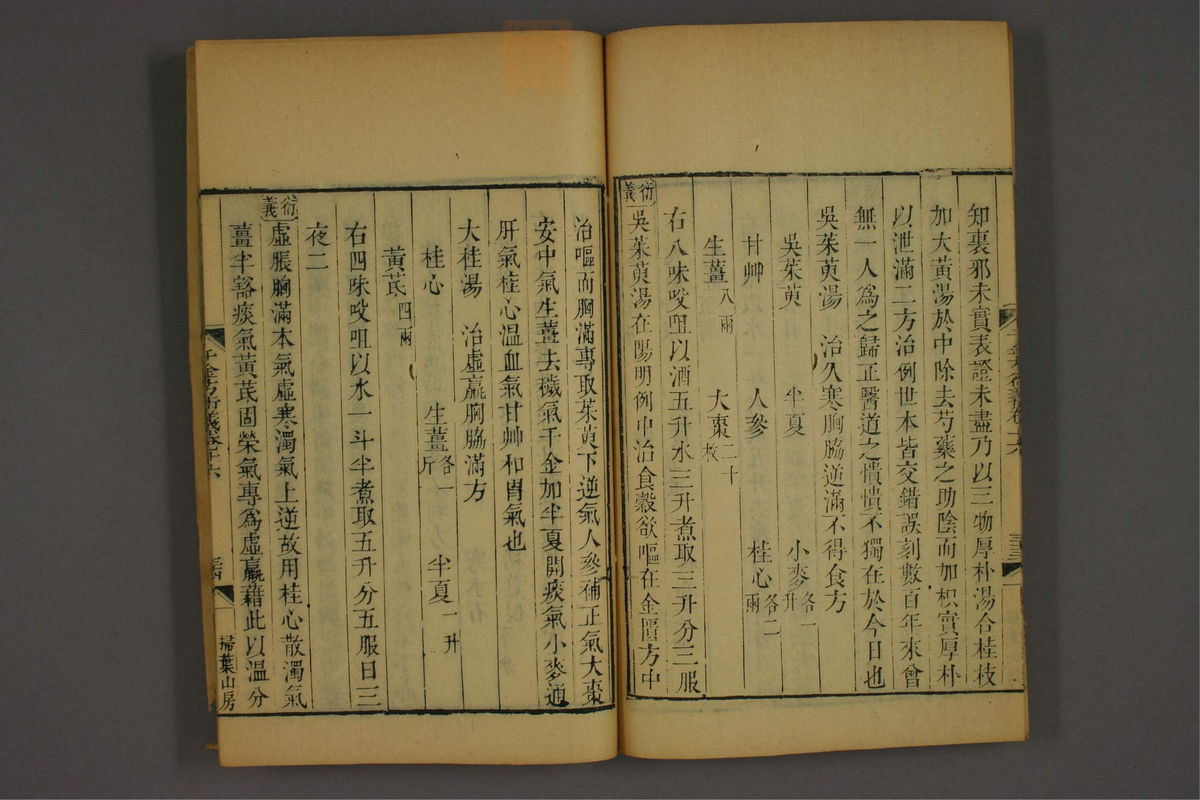 知裏邪未實表證未盡乃以三物厚朴湯合桂枝
加大黃湯於中除去芍藥之助陰而加枳實厚朴
以泄滿二方治例世本皆交錯誤刻數百年來曾
無一人為之歸正醫道之憒憒不獨在於今日也
吳茱萸湯　治久寒胸脇逆滿不得食方
吳茱萸　半夏　小麥各一升
甘艸　人參　桂心各二兩
生薑八兩　大棗二十枚
右八味㕮咀以酒五升水三升煮取三升分三服
衍義　吳茱萸湯在陽明例中治食穀欲嘔在金匱方中
治嘔而胸滿專取茱萸下逆氣人參補正氣大棗
安中氣生薑去穢氣千金加半夏開痰氣小麥通
肝氣桂心温血氣甘艸和胃氣也
大桂湯　治虛羸胸脇滿方
桂心　生薑各一斤　半夏一升
黃芪四兩
右四味㕮咀以水一斗半煮取五升分五服日三
夜二
衍義　虛脹胸滿本氣虛寒濁氣上逆故用桂心散濁氣
薑半豁痰氣黃芪固榮氣專為虛羸藉此以温分
千金方衍義卷十六
掃葉山房